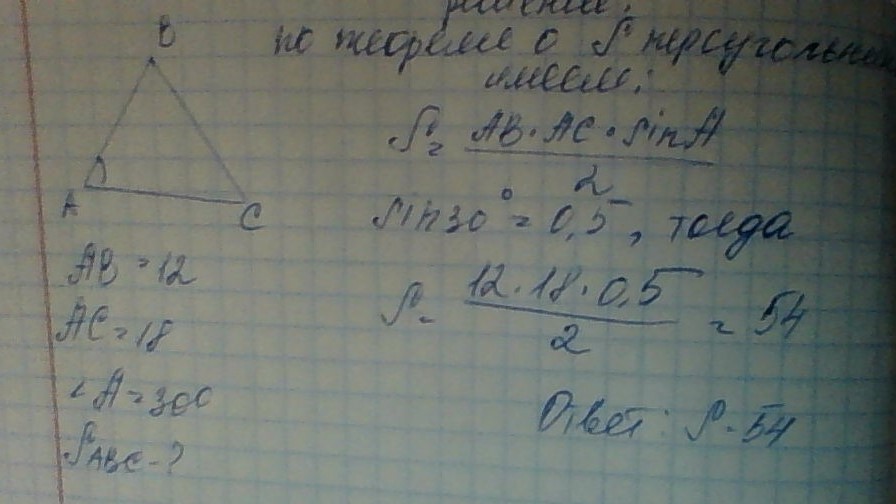 решение:
по теореме о S треугольника
имеем:
S = AB · AC · sin A
2
sin30° = 0,5, тогда
S = 12 · 18 · 0,5
2
= 54
Ответ: S - 54
B
A
C
AB = 12
AC = 18
∠A = 300
SABC - ?